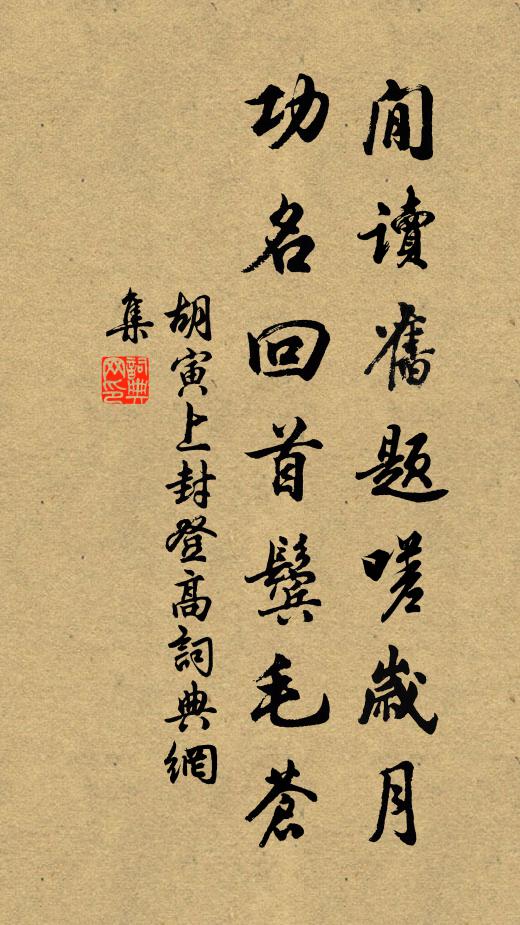 閒讀舊題嗟歲月
功名回首鬢毛蒼
胡寅上封登高詞典網
集
詞典
网印